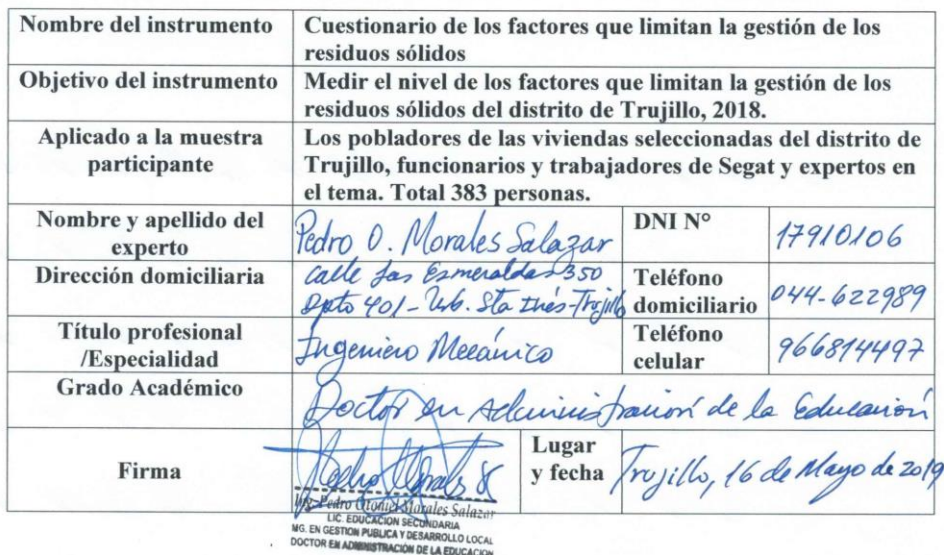 Nombre del instrumento
Cuestionario de los factores que limitan la gestión de los
residuos sólidos
Objetivo del instrumento
Medir el nivel de los factores que limitan la gestión de los
residuos sólidos del distrito de Trujillo, 2018.
Aplicado a la muestra
participante
Los pobladores de las viviendas seleccionadas del distrito de
Trujillo, funcionarios y trabajadores de Segat y expertos en
el tema. Total 383 personas.
Nombre y apellido del
experto
Pedro O. Morales Salazar
DNI N°
17910106
Dirección domiciliaria
Calle Las Esmeraldas 350
Dpto 401 - Urb. Sta Inés - Trujillo
Teléfono
domiciliario
044-622989
Título profesional
/Especialidad
Ingeniero Mecánico
Teléfono
celular
966814497
Grado Académico
Doctor en Administración de la Educación
Firma
Pedro Morales S
Ing. Pedro Otoniel Morales Salazar
LIC. EDUCACION SECUNDARIA
MG. EN GESTION PUBLICA Y DESARROLLO LOCAL
DOCTOR EN ADMINISTRACIÓN DE LA EDUCACION
Lugar
y fecha
Trujillo, 16 de Mayo de 2019